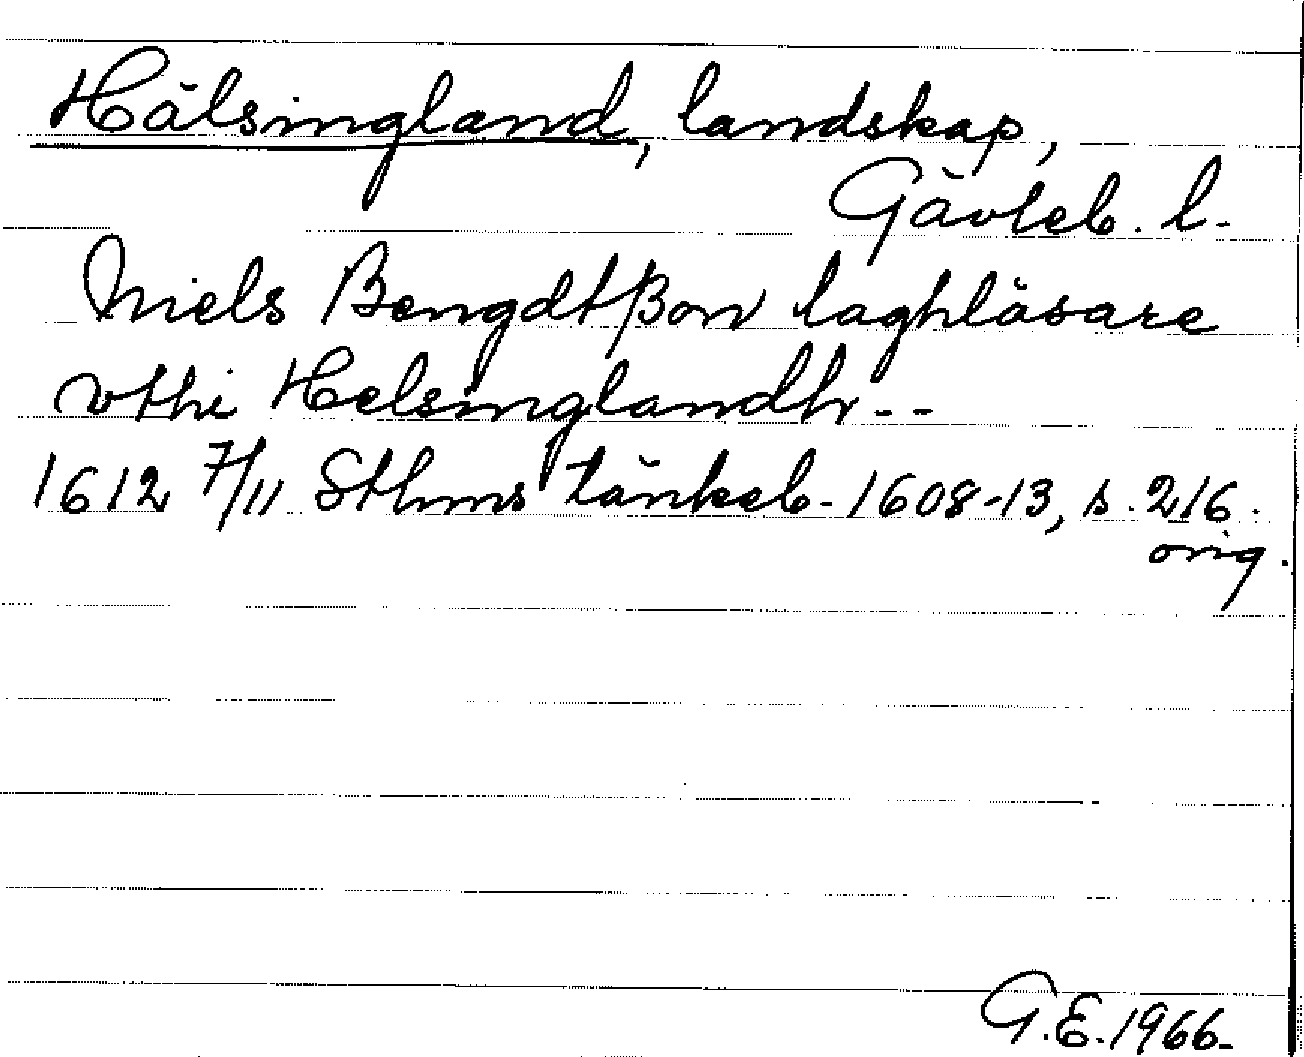 Hälsingland, landskap,
Gävleb. l.
Niels Bengdtßon laghläsare
vthi Helsinglandh--
1612 7/11 Sthms tänkeb. 1608-13, s. 216.
orig.
G.E. 1966.